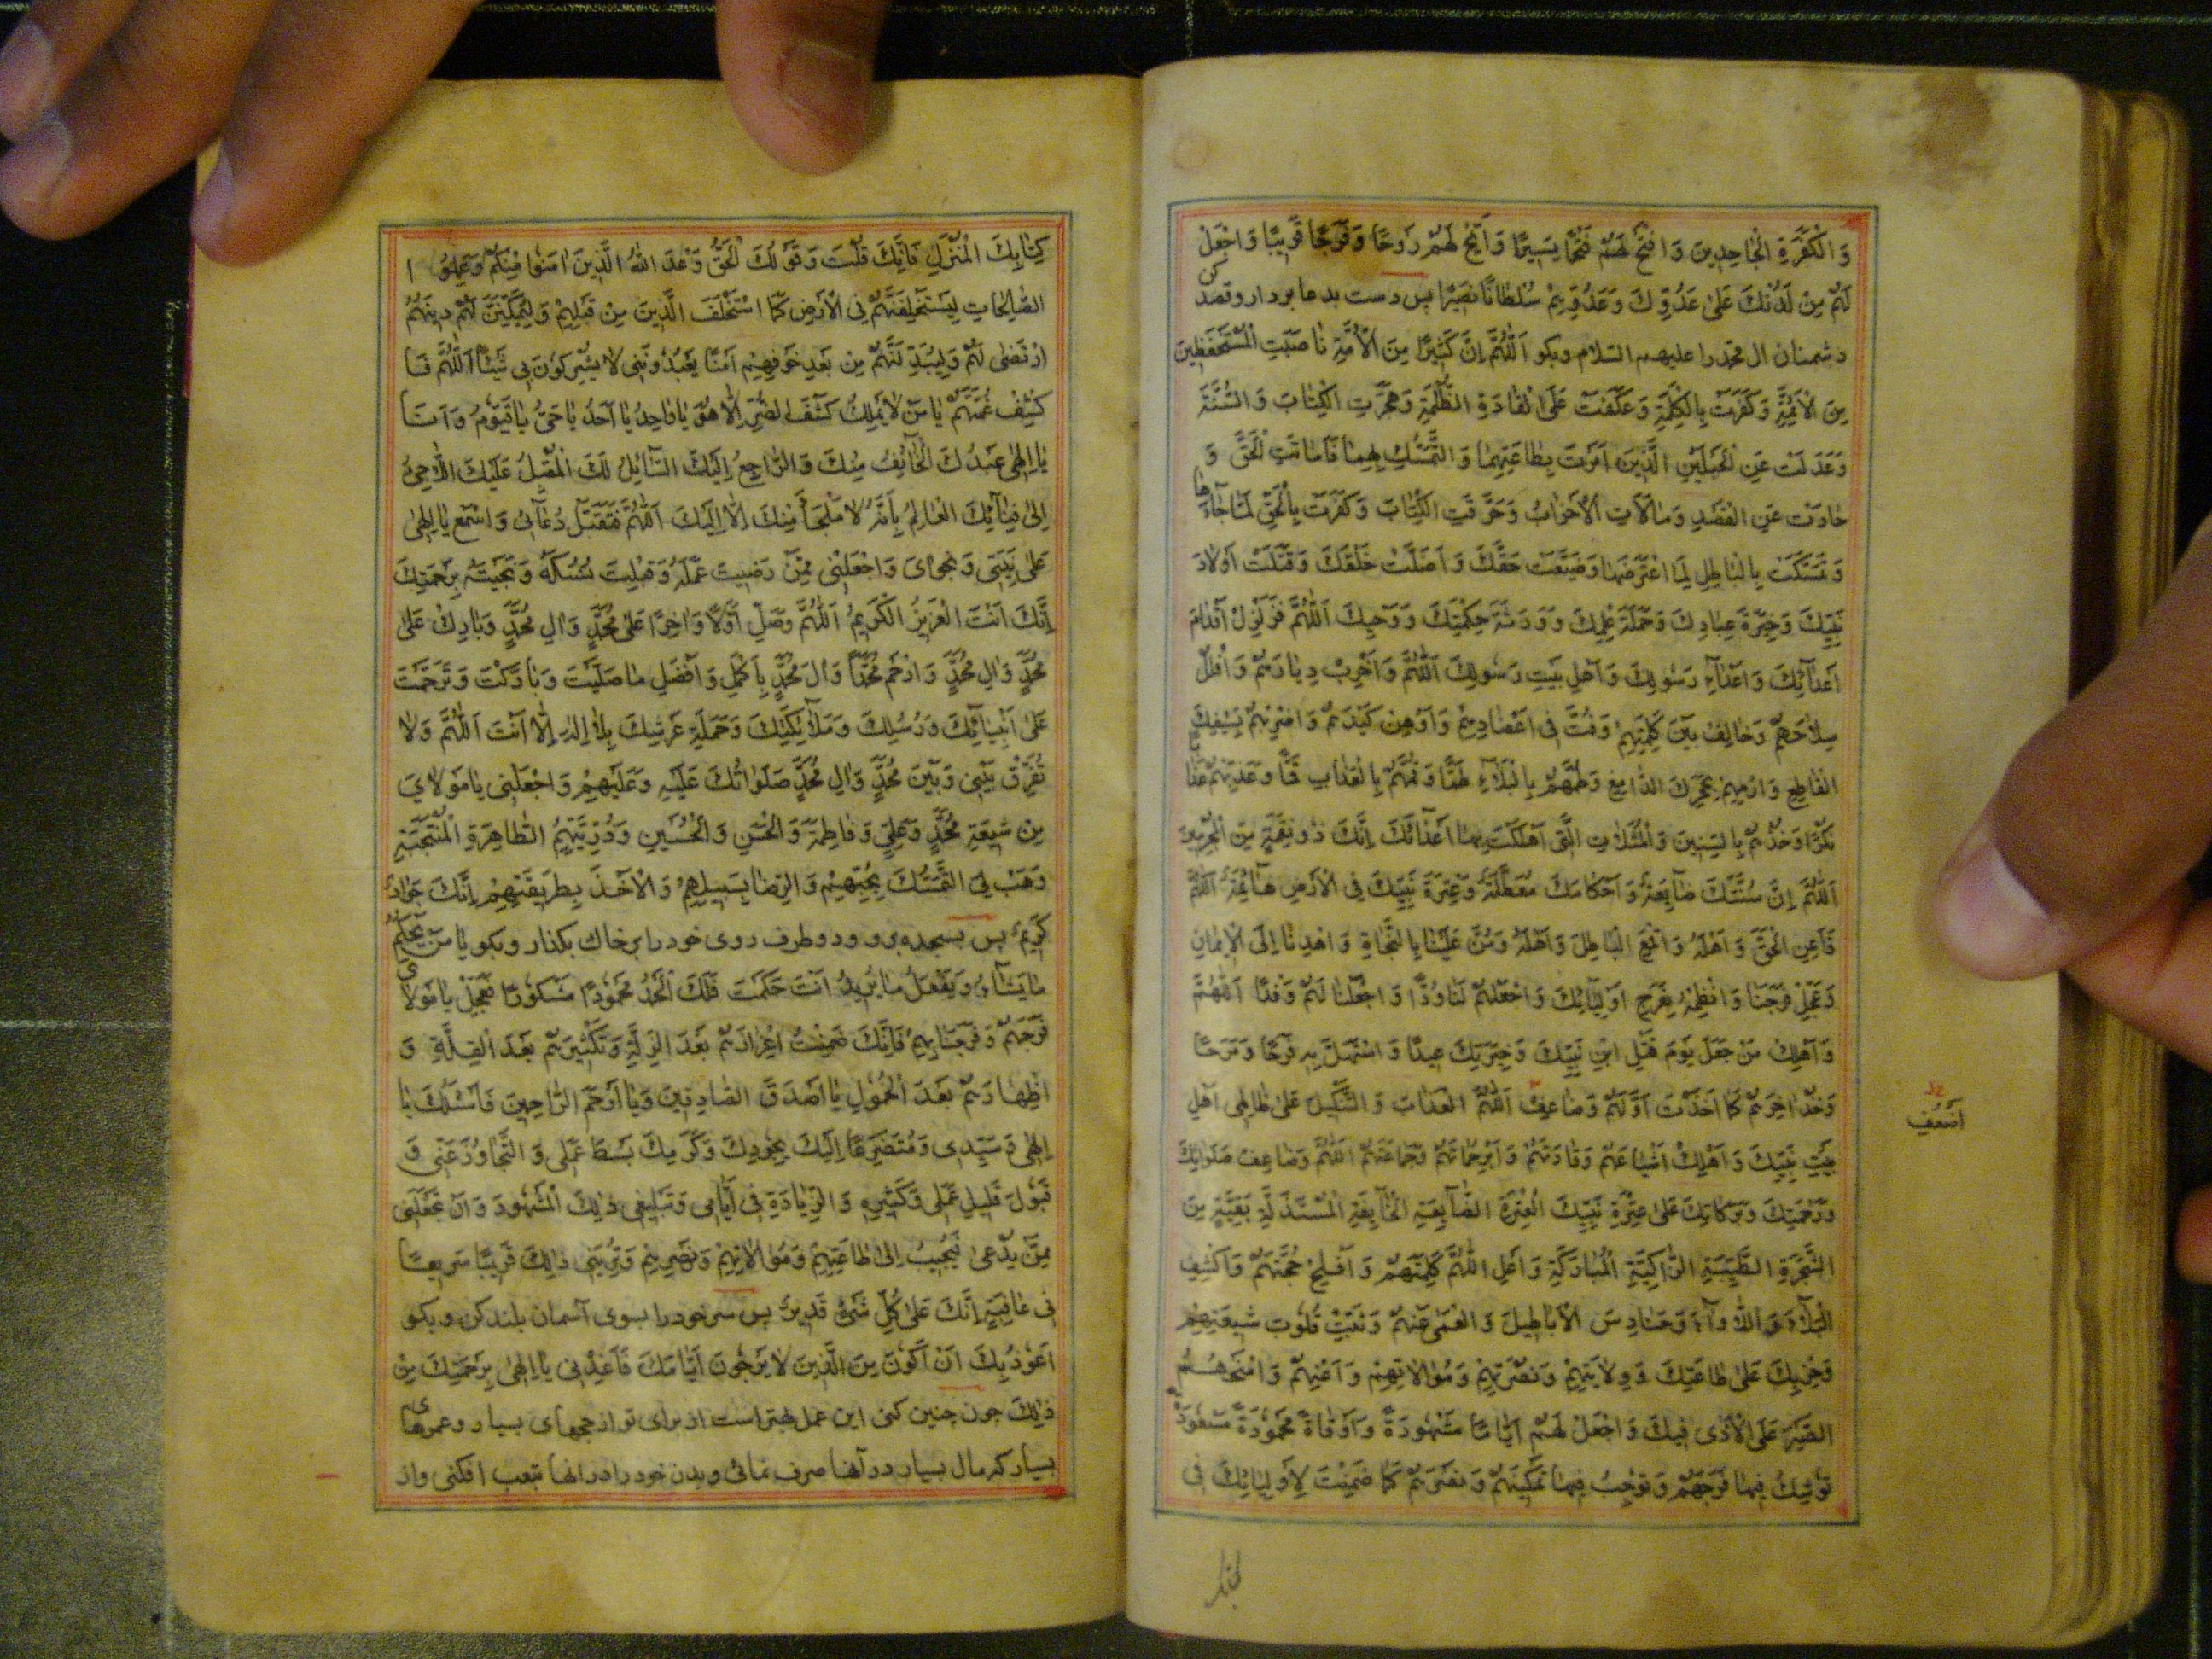 وَالْكَفَرَةِ الْجَاحِدِينَ وَافْتَحْ لَهُمْ فَتْحًا يَسِيرًا وَأَتِحْ لَهُمْ رَوْحًا وَفَرَجًا قَرِيبًا وَاجْعَلْ
لَهُمْ مِنْ لَدُنْكَ عَلَىٰ عَدُوِّكَ وَعَدُوِّهِمْ سُلْطَانًا نَصِيرًا پس دست بدعا بردار و قصد کن
دشمنان ال محمد را علیهم السلام وبکو اَللّٰهُمَّ اِنَّ كَثِيرًا مِنَ الْاُمَّةِ نَاصَبَتِ الْمُسْتَحْفَظِينَ
مِنَ الْاَئِمَّةِ وَكَفَرَتْ بِالْكَلِمَةِ وَعَكَفَتْ عَلَى الْقَادَةِ الظَّلَمَةِ وَهَجَرَتِ الْكِتَابَ وَالسُّنَّةَ
وَعَدَلَتْ عَنِ الْحَبْلَيْنِ الَّذَيْنِ اَمَرْتَ بِطَاعَتِهِمَا وَالتَّمَسُّكِ بِهِمَا فَاَمَاتَتِ الْحَقَّ وَ
حَادَتْ عَنِ الْقَصْدِ وَمَالَاَتِ الْاَحْزَابَ وَحَرَّفَتِ الْكِتَابَ وَكَفَرَتْ بِالْحَقِّ لَمَّا جَاءَهَا
وَتَمَسَّكَتْ بِالْبَاطِلِ لَمَّا اعْتَرَضَهَا وَضَيَّعَتْ حَقَّكَ وَاَضَلَّتْ خَلْقَكَ وَقَتَلَتْ اَوْلَادَ
نَبِيِّكَ وَخِيَرَةَ عِبَادِكَ وَحَمَلَةَ عِلْمِكَ وَوَرَثَةَ حِكْمَتِكَ وَوَحْيِكَ اَللّٰهُمَّ فَزَلْزِلْ اَقْدَامَ
اَعْدَائِكَ وَاَعْدَاءِ رَسُولِكَ وَاَهْلِ بَيْتِ رَسُولِكَ اَللّٰهُمَّ وَاَخْرِبْ دِيَارَهُمْ وَافْلُلْ
سِلَاحَهُمْ وَخَالِفْ بَيْنَ كَلِمَتِهِمْ وَفُتَّ فِي اَعْضَادِهِمْ وَاَوْهِنْ كَيْدَهُمْ وَاضْرِبْهُمْ بِسَيْفِكَ
الْقَاطِعِ وَارْمِهِمْ بِحَجَرِكَ الدَّامِغِ وَطُمَّهُمْ بِالْبَلَاءِ طَمًّا وَقُمَّهُمْ بِالْعَذَابِ قَمًّا وَعَذِّبْهُمْ عَذَابًا
نُكْرًا وَخُذْهُمْ بِالسِّنِينَ وَالْمَثُلَاتِ الَّتِي اَهْلَكْتَ بِهَا اَعْدَائَكَ اِنَّكَ ذُو نِقْمَةٍ مِنَ الْمُجْرِمِينَ
اَللّٰهُمَّ اِنَّ سُنَّتَكَ ضَايِعَةٌ وَاَحْكَامَكَ مُعَطَّلَةٌ وَعِتْرَةَ نَبِيِّكَ فِي الْاَرْضِ هَائِمَةٌ اَللّٰهُمَّ
فَاَعِنِ الْحَقَّ وَاَهْلَهُ وَاقْمَعِ الْبَاطِلَ وَاَهْلَهُ وَمُنَّ عَلَيْنَا بِالنَّجَاةِ وَاهْدِنَا اِلَى الْاِيمَانِ
وَعَجِّلْ فَرَجَنَا وَانْظِمْهُ بِفَرَجِ اَوْلِيَائِكَ وَاجْعَلْهُمْ لَنَا وُدًّا وَاجْعَلْنَا لَهُمْ وَفْدًا اَللّٰهُمَّ
وَاَهْلِكْ مَنْ جَعَلَ يَوْمَ قَتْلِ ابْنِ نَبِيِّكَ وَخِيَرَتِكَ عِيدًا وَاسْتَهَلَّ بِهِ فَرَحًا وَمَرَحًا
وَخُذْ اٰخِرَهُمْ كَمَا اَخَذْتَ اَوَّلَهُمْ وَضَاعِفِ اَللّٰهُمَّ الْعَذَابَ وَالتَّنْكِيلَ عَلَىٰ ظَالِمِي اَهْلِ
بَيْتِ نَبِيِّكَ وَاَهْلِكْ اَشْيَاعَهُمْ وَقَادَتَهُمْ وَاَبِرْ حُمَاتَهُمْ وَجَمَاعَتَهُمْ اَللّٰهُمَّ وَضَاعِفْ صَلَوَاتِكَ
وَرَحْمَتِكَ وَبَرَكَاتِكَ عَلَىٰ عِتْرَةِ نَبِيِّكَ الْعِتْرَةِ الضَّايِعَةِ الْخَائِفَةِ الْمُسْتَذَلَّةِ بَقِيَّةٍ مِنَ
الشَّجَرَةِ الطَّيِّبَةِ الزَّاكِيَةِ الْمُبَارَكَةِ وَاَعْلِ اللّٰهُمَّ كَلِمَتَهُمْ وَاَفْلِجْ حُجَّتَهُمْ وَاكْشِفِ
الْبَلَاءَ وَاللَّأْوَاءَ وَحَنَادِسَ الْاَبَاطِيلِ وَالْعَمَىٰ عَنْهُمْ وَثَبِّتْ قُلُوبَ شِيعَتِهِمْ
وَحِزْبِكَ عَلَىٰ طَاعَتِكَ وَوِلَايَتِهِمْ وَنُصْرَتِهِمْ وَمُوَالَاتِهِمْ وَاَعِنْهُمْ وَامْنَحْهُمُ
الصَّبْرَ عَلَى الْاَذَىٰ فِيكَ وَاجْعَلْ لَهُمْ اَيَّامًا مَشْهُودَةً وَاَوْقَاتًا مَحْمُودَةً مَسْعُودَةً
تُوشِكُ فِيهَا فَرَجَهُمْ وَتُوجِبُ فِيهَا تَمْكِينَهُمْ وَنَصْرَهُمْ كَمَا ضَمِنْتَ لِاَوْلِيَائِكَ فِي
كِتَابِكَ الْمُنْزَلِ فَاِنَّكَ قُلْتَ وَقَوْلُكَ الْحَقُّ وَعَدَ اللّٰهُ الَّذِينَ اٰمَنُوا مِنْكُمْ وَعَمِلُوا
الصَّالِحَاتِ لَيَسْتَخْلِفَنَّهُمْ فِي الْاَرْضِ كَمَا اسْتَخْلَفَ الَّذِينَ مِنْ قَبْلِهِمْ وَلَيُمَكِّنَنَّ لَهُمْ دِينَهُمُ
ارْتَضَىٰ لَهُمْ وَلَيُبَدِّلَنَّهُمْ مِنْ بَعْدِ خَوْفِهِمْ اَمْنًا يَعْبُدُونَنِي لَا يُشْرِكُونَ بِي شَيْئًا اَللّٰهُمَّ فَا
كْشِفْ غُمَّتَهُمْ يَا مَنْ لَا يَمْلِكُ كَشْفَ الضُّرِّ اِلَّا هُوَ يَا وَاحِدُ يَا اَحَدُ يَا حَيُّ يَا قَيُّومُ وَاَنَا
يَا اِلٰهِي عَبْدُكَ الْخَائِفُ مِنْكَ وَالرَّاجِعُ اِلَيْكَ السَّائِلُ لَكَ الْمُقْبِلُ عَلَيْكَ اللَّاجِئُ
اِلَىٰ فِنَائِكَ الْعَالِمُ بِاَنَّهُ لَا مَلْجَأَ مِنْكَ اِلَّا اِلَيْكَ اَللّٰهُمَّ فَتَقَبَّلْ دُعَائِي وَاسْمَعْ يَا اِلٰهِي
عَلَانِيَتِي وَنَجْوَايَ وَاجْعَلْنِي مِمَّنْ رَضِيتَ عَمَلَهُ وَقَبِلْتَ نُسُكَهُ وَنَجَّيْتَهُ بِرَحْمَتِكَ
اِنَّكَ اَنْتَ الْعَزِيزُ الْكَرِيمُ اَللّٰهُمَّ وَصَلِّ اَوَّلًا وَاٰخِرًا عَلَىٰ مُحَمَّدٍ وَاٰلِ مُحَمَّدٍ وَبَارِكْ عَلَىٰ
مُحَمَّدٍ وَاٰلِ مُحَمَّدٍ وَارْحَمْ مُحَمَّدًا وَاٰلَ مُحَمَّدٍ بِاَكْمَلِ وَاَفْضَلِ مَا صَلَّيْتَ وَبَارَكْتَ وَتَرَحَّمْتَ
عَلَىٰ اَنْبِيَائِكَ وَرُسُلِكَ وَمَلَائِكَتِكَ وَحَمَلَةِ عَرْشِكَ بِلَا اِلٰهَ اِلَّا اَنْتَ اَللّٰهُمَّ وَلَا
تُفَرِّقْ بَيْنِي وَبَيْنَ مُحَمَّدٍ وَاٰلِ مُحَمَّدٍ صَلَوَاتُكَ عَلَيْهِ وَعَلَيْهِمْ وَاجْعَلْنِي يَا مَوْلَايَ
مِنْ شِيعَةِ مُحَمَّدٍ وَعَلِيٍّ وَفَاطِمَةَ وَالْحَسَنِ وَالْحُسَيْنِ وَذُرِّيَّتِهِمُ الطَّاهِرَةِ الْمُنْتَجَبَةِ
وَهَبْ لِيَ التَّمَسُّكَ بِحَبْلِهِمْ وَالرِّضَا بِسَبِيلِهِمْ وَالْاَخْذَ بِطَرِيقَتِهِمْ اِنَّكَ جَوَادٌ
كَرِيمٌ پس بسجده برو و دو طرف روی خود را بر خاك بکذار وبکو يَا مَنْ يَحْكُمُ
مَا يَشَاءُ وَيَفْعَلُ مَا يُرِيدُ اَنْتَ حَكَمْتَ فَلَكَ الْحَمْدُ مَحْمُودًا مَشْكُورًا فَعَجِّلْ يَا مَوْلَايَ
فَرَجَهُمْ وَفَرَجَنَا بِهِمْ فَاِنَّكَ ضَمِنْتَ اِعْزَازَهُمْ بَعْدَ الذِّلَّةِ وَتَكْثِيرَهُمْ بَعْدَ الْقِلَّةِ وَ
اِظْهَارَهُمْ بَعْدَ الْخُمُولِ يَا اَصْدَقَ الصَّادِقِينَ وَيَا اَرْحَمَ الرَّاحِمِينَ فَاَسْئَلُكَ يَا
اِلٰهِي وَسَيِّدِي مُتَضَرِّعًا اِلَيْكَ بِجُودِكَ وَكَرَمِكَ بَسْطَ عَمَلِي وَالتَّجَاوُزَ عَنِّي وَ
قَبُولَ قَلِيلِ عَمَلِي وَكَثِيرِهِ وَالزِّيَادَةَ فِي اَيَّامِي وَتَبْلِيغِي ذٰلِكَ الْمَشْهُودَ وَاَنْ تَجْعَلَنِي
مِمَّنْ يُدْعَىٰ فَيُجِيبُ اِلَىٰ طَاعَتِهِمْ وَمُوَالَاتِهِمْ وَنَصْرِهِمْ وَتُرِيَنِي ذٰلِكَ قَرِيبًا سَرِيعًا
فِي عَافِيَةٍ اِنَّكَ عَلَىٰ كُلِّ شَيْءٍ قَدِيرٌ پس سر خود را بسوی آسمان بلند کن و بکو
اَعُوذُ بِكَ اَنْ اَكُونَ مِنَ الَّذِينَ لَا يَرْجُونَ اَيَّامَكَ فَاَعِذْنِي يَا اِلٰهِي بِرَحْمَتِكَ مِنْ
ذٰلِكَ چون چنین کنی این عمل بهتر است از برای تو از حجهای بسیار و عمرهای
بسیار که مال بسیار در آنها صرف نمائی و بدن خود را در انها بتعب افکنی و از